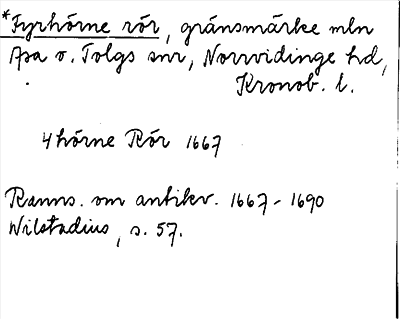 *Fyrhörne rör, gränsmärke mln
Asa o. Tolgs snr, Norrvidinge hd,
Kronob. l.
4 hörne Rör 1667
Ranns. om antikv. 1667-1690
Wilstadius, s. 57.